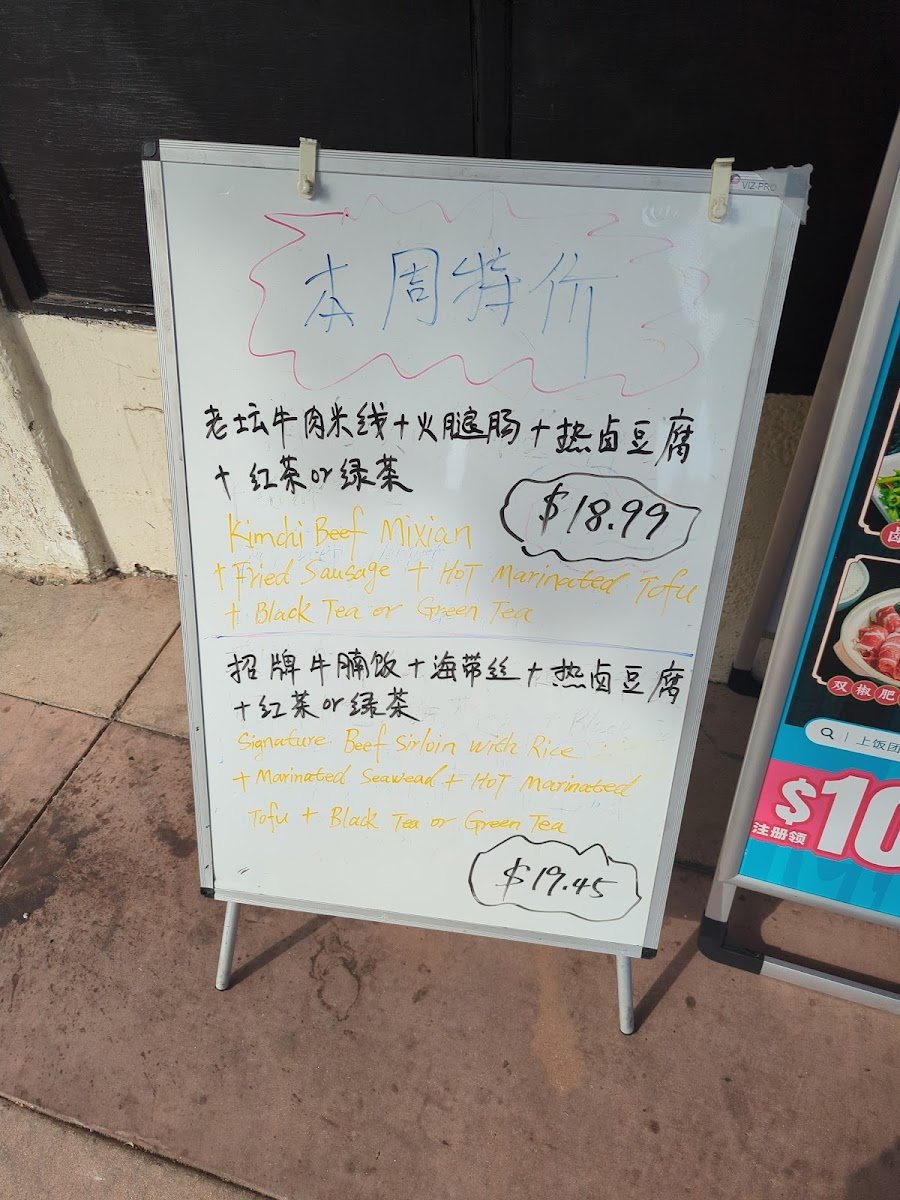 VIZ-PRO
本周特价
老坛牛肉米线+火腿肠+热卤豆腐
+红茶or绿茶
$18.99
Kimchi Beef Mixian
+ Fried Sausage + HoT Marinated Tofu
+ Black Tea or Green Tea
招牌牛腩饭+海带丝+热卤豆腐
+红茶or绿茶
Signature Beef Sirloin with Rice
+ Marinated Seawead + HoT Marinated
Tofu + Black Tea or Green Tea
$19.45
卤
双椒肥
上饭团
$10
注册领